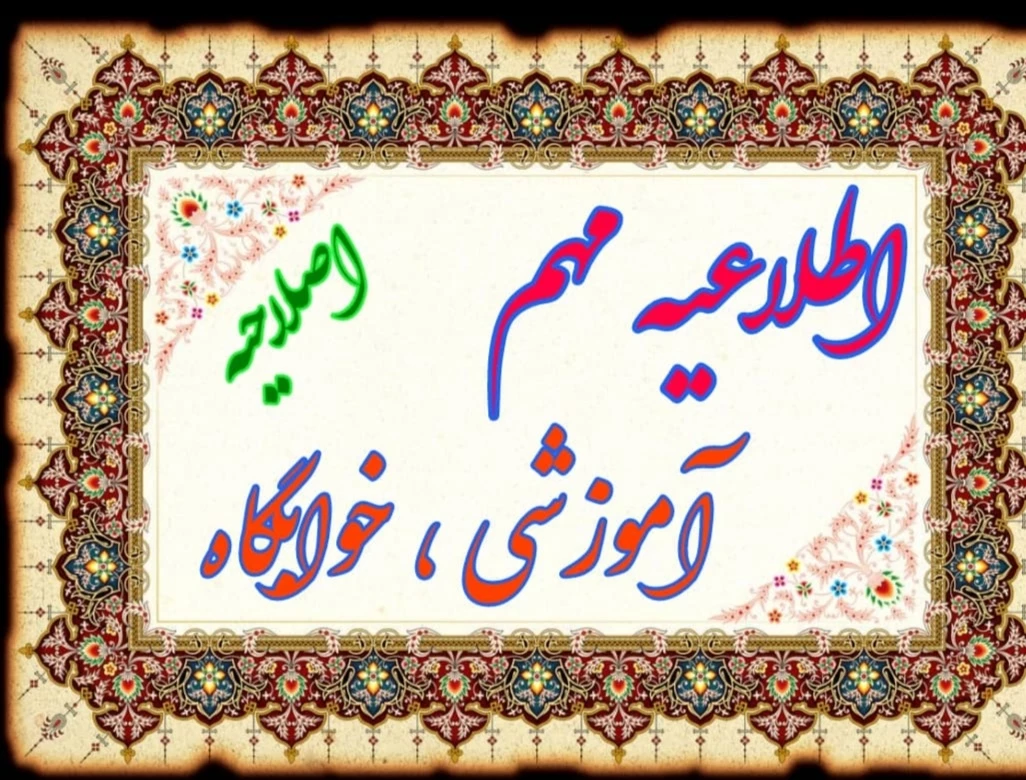 اطلاعیه مهم
اصلاحیه
آموزشی ، خوابگاه